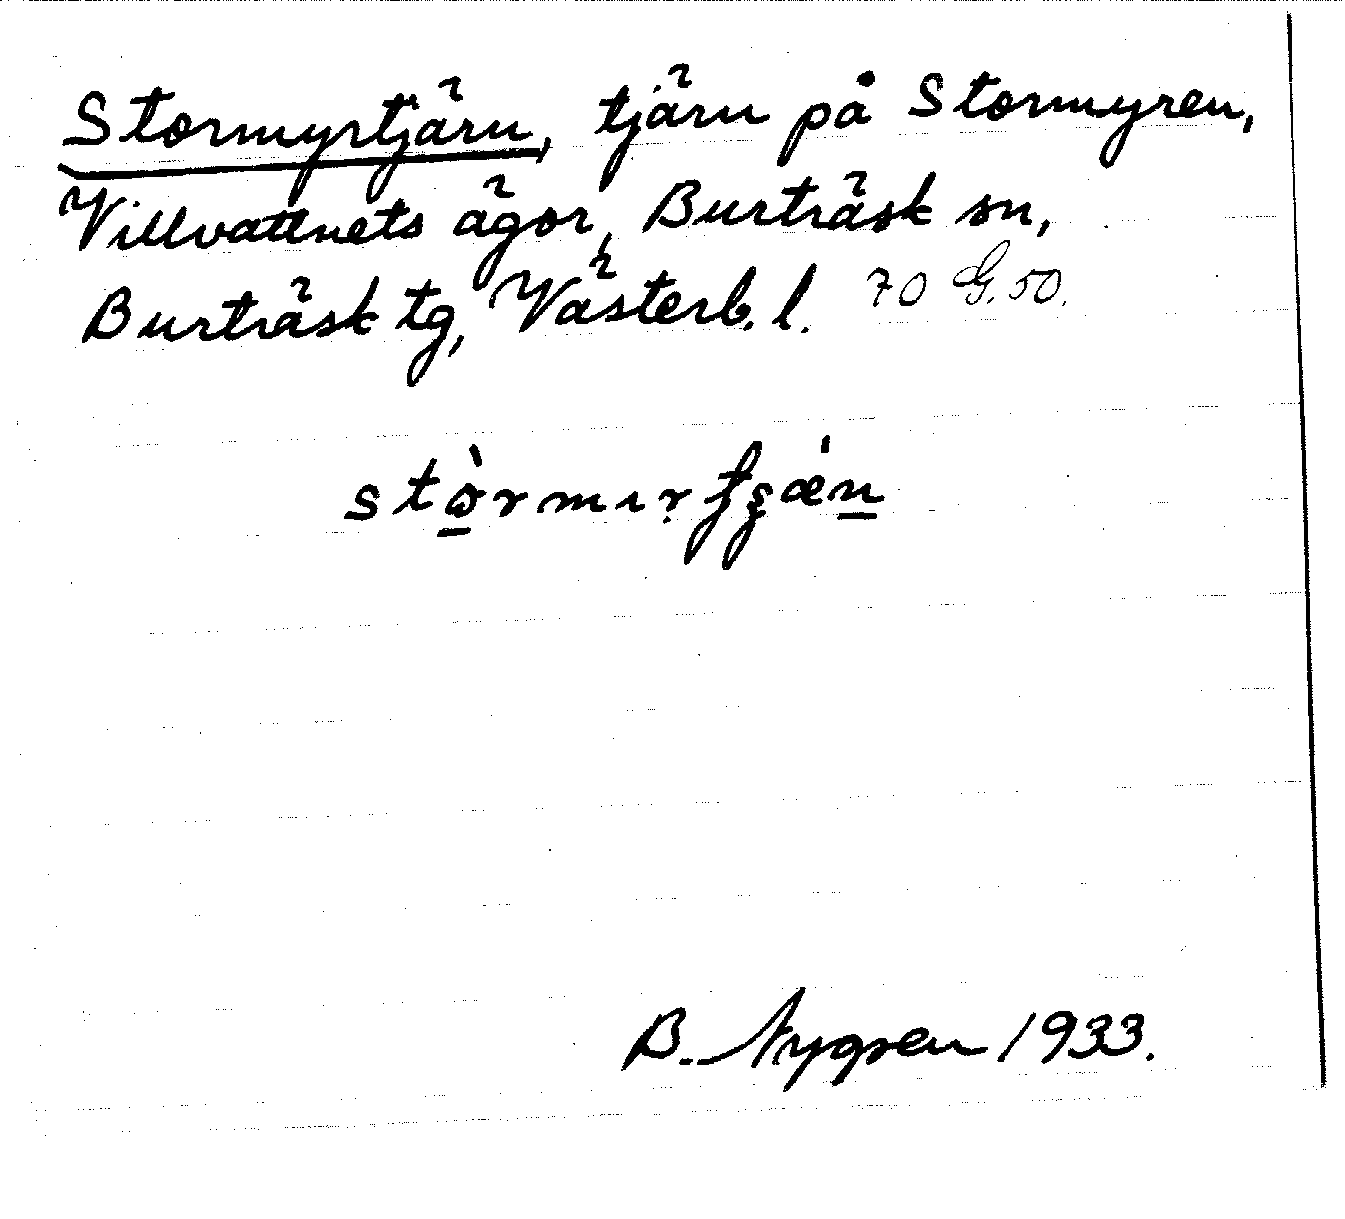 Stormyrtjärn, tjärn på Stormyren,
Villvattnets ägor, Burträsk sn,
Burträsk tg, Västerb. l. 70 G. 50.
B. Nygren 1933.